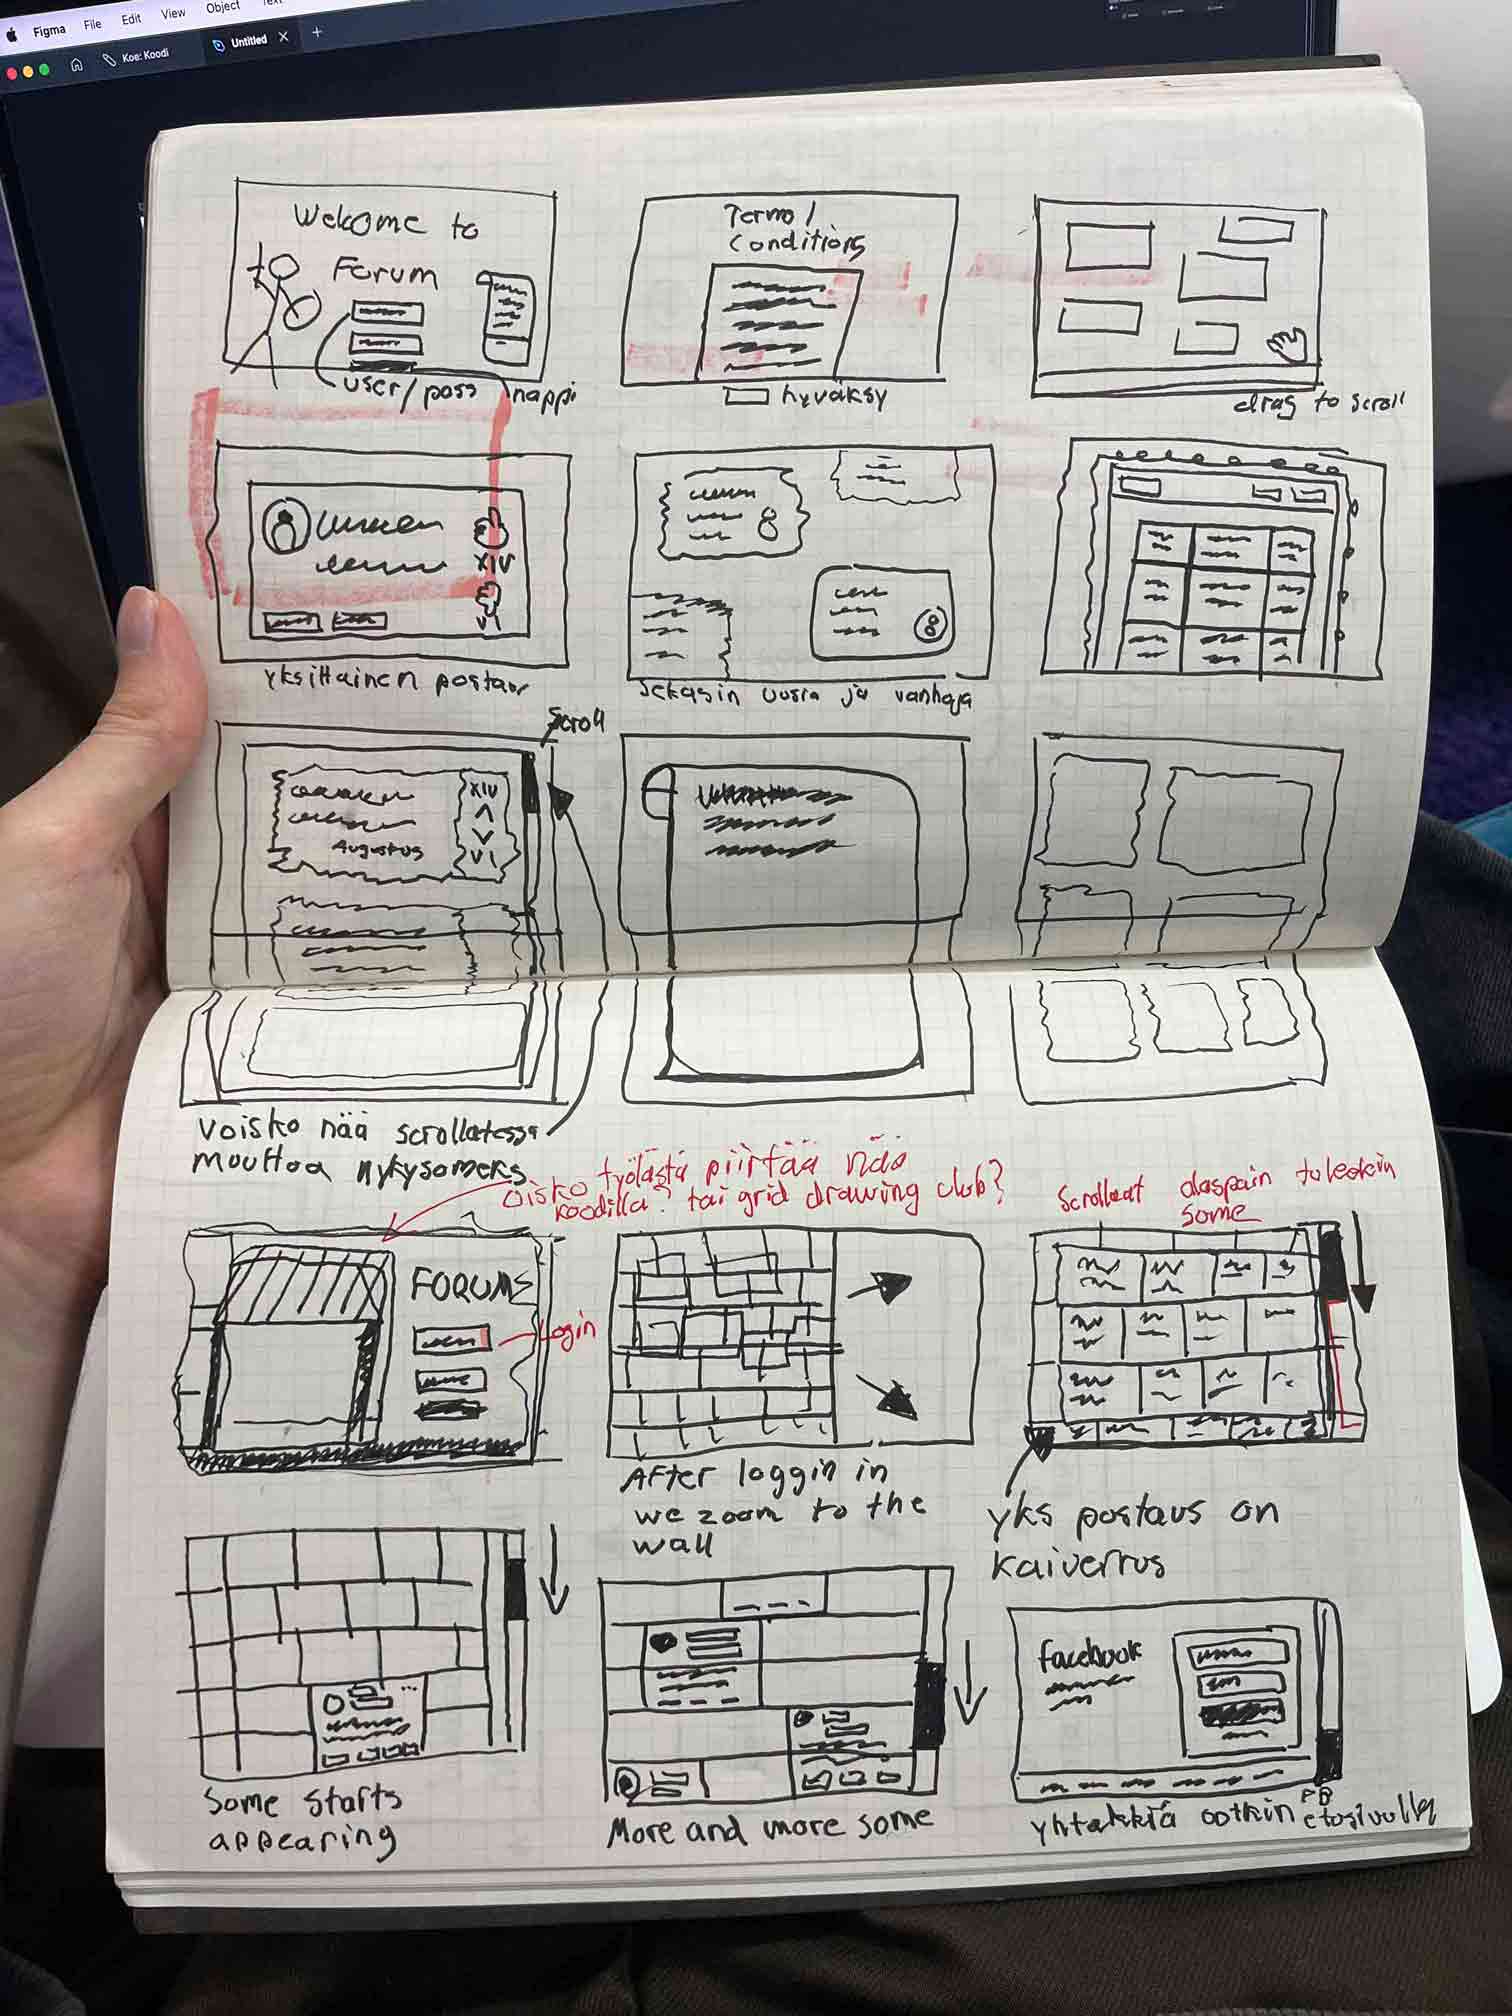 Figma File Edit View Object Text
Koe: Koodi Untitled
Welcome to
Forum
user/pass nappi
Terms /
Conditions
hyväksy
drag to scroll
XIV
VI
yksittäinen postaus
sekasin uusia ja vanhoja
Scroll
XIV
Augustus
VI
Voisko nää scrollatessa
muuttua nykysomeks
Oisko työlästä piirtää nää
koodilla? tai grid drawing club?
Scrollaat alaspäin tuleekin
some
FORUMS
Login
After loggin in
we zoom to the
wall
yks postaus on
kaiverrus
Some starts
appearing
More and more some
facebook
yhtäkkiä ootkin FB etusivulla